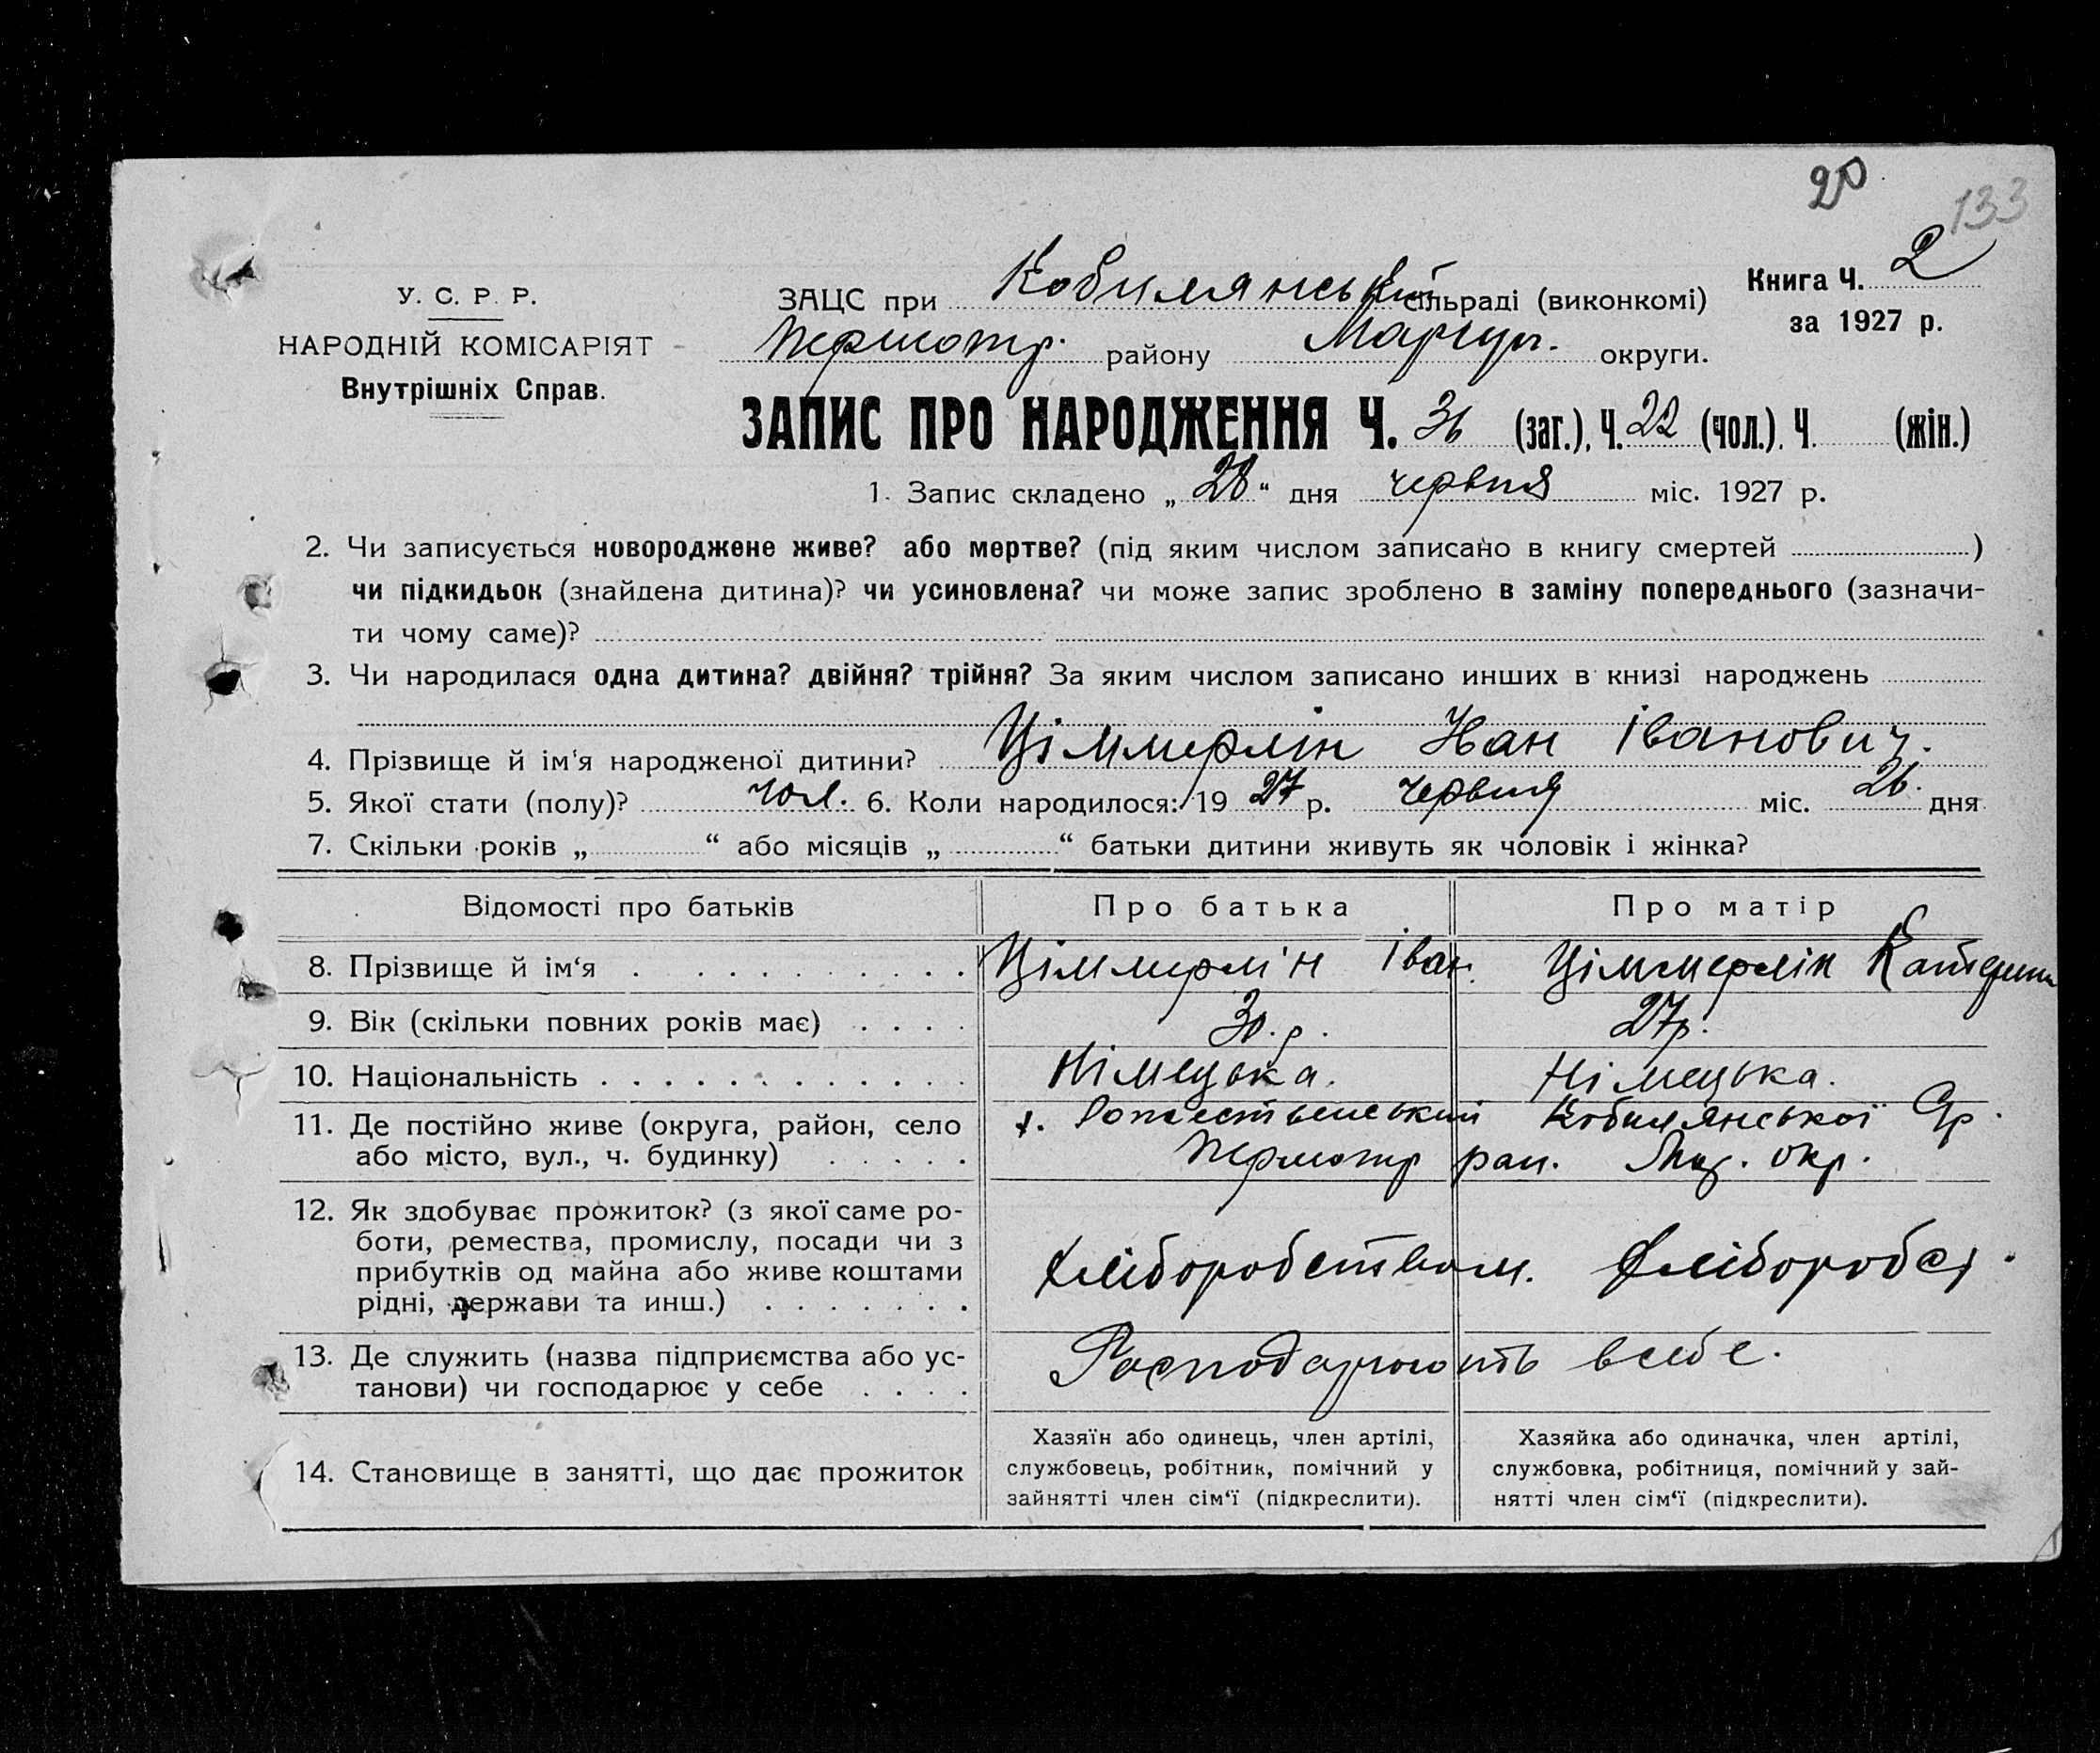 20
133
У. С. Р. Р.
НАРОДНІЙ КОМІСАРІЯТ
Внутрішніх Справ.
ЗАЦС при Кобилянській сільраді (виконкомі)
Першотр. району Маріуп. округи.
Книга Ч. 2
за 1927 р.
ЗАПИС ПРО НАРОДЖЕННЯ Ч. 36 (заг.), Ч. 22 (чол.). Ч. (жін.)
1. Запис складено „ 28 “ дня червня міс. 1927 р.
2. Чи записується новороджене живе? або мертве? (під яким числом записано в книгу смертей )
чи підкидьок (знайдена дитина)? чи усиновлена? чи може запис зроблено в заміну попереднього (зазначи-
ти чому саме)?
3. Чи народилася одна дитина? двійня? трійня? За яким числом записано инших в книзі народжень
4. Прізвище й ім‘я народженої дитини? Ціммерлін Іван Іванович.
5. Якої стати (полу)? чол. 6. Коли народилося: 1927 р. червня міс. 26. дня
7. Скільки років „ “ або місяців „ “ батьки дитини живуть як чоловік і жінка?
Відомості про батьків Про батька Про матір
8. Прізвище й ім‘я Ціммерлін Іван. Ціммерлін Катерина
9. Вік (скільки повних років має) 30. р. 27 р.
10. Національність Німецька. Німецька.
11. Де постійно живе (округа, район, село х. Рожественський Кобилянської
або місто, вул., ч. будинку) Першотр рай. Мар. окр.
12. Як здобуває прожиток? (з якої саме ро-
боти, ремества, промислу, посади чи з
прибутків од майна або живе коштами
рідні, держави та инш.)
Хліборобством. Хлібороб
13. Де служить (назва підприємства або ус-
танови) чи господарює у себе
Господарюють в себе.
14. Становище в занятті, що дає прожиток
Хазяїн або одинець, член артілі,
службовець, робітник, помічний у
зайнятті член сім‘ї (підкреслити).
Хазяйка або одиначка, член артілі,
службовка, робітниця, помічний у зай-
нятті член сім‘ї (підкреслити).